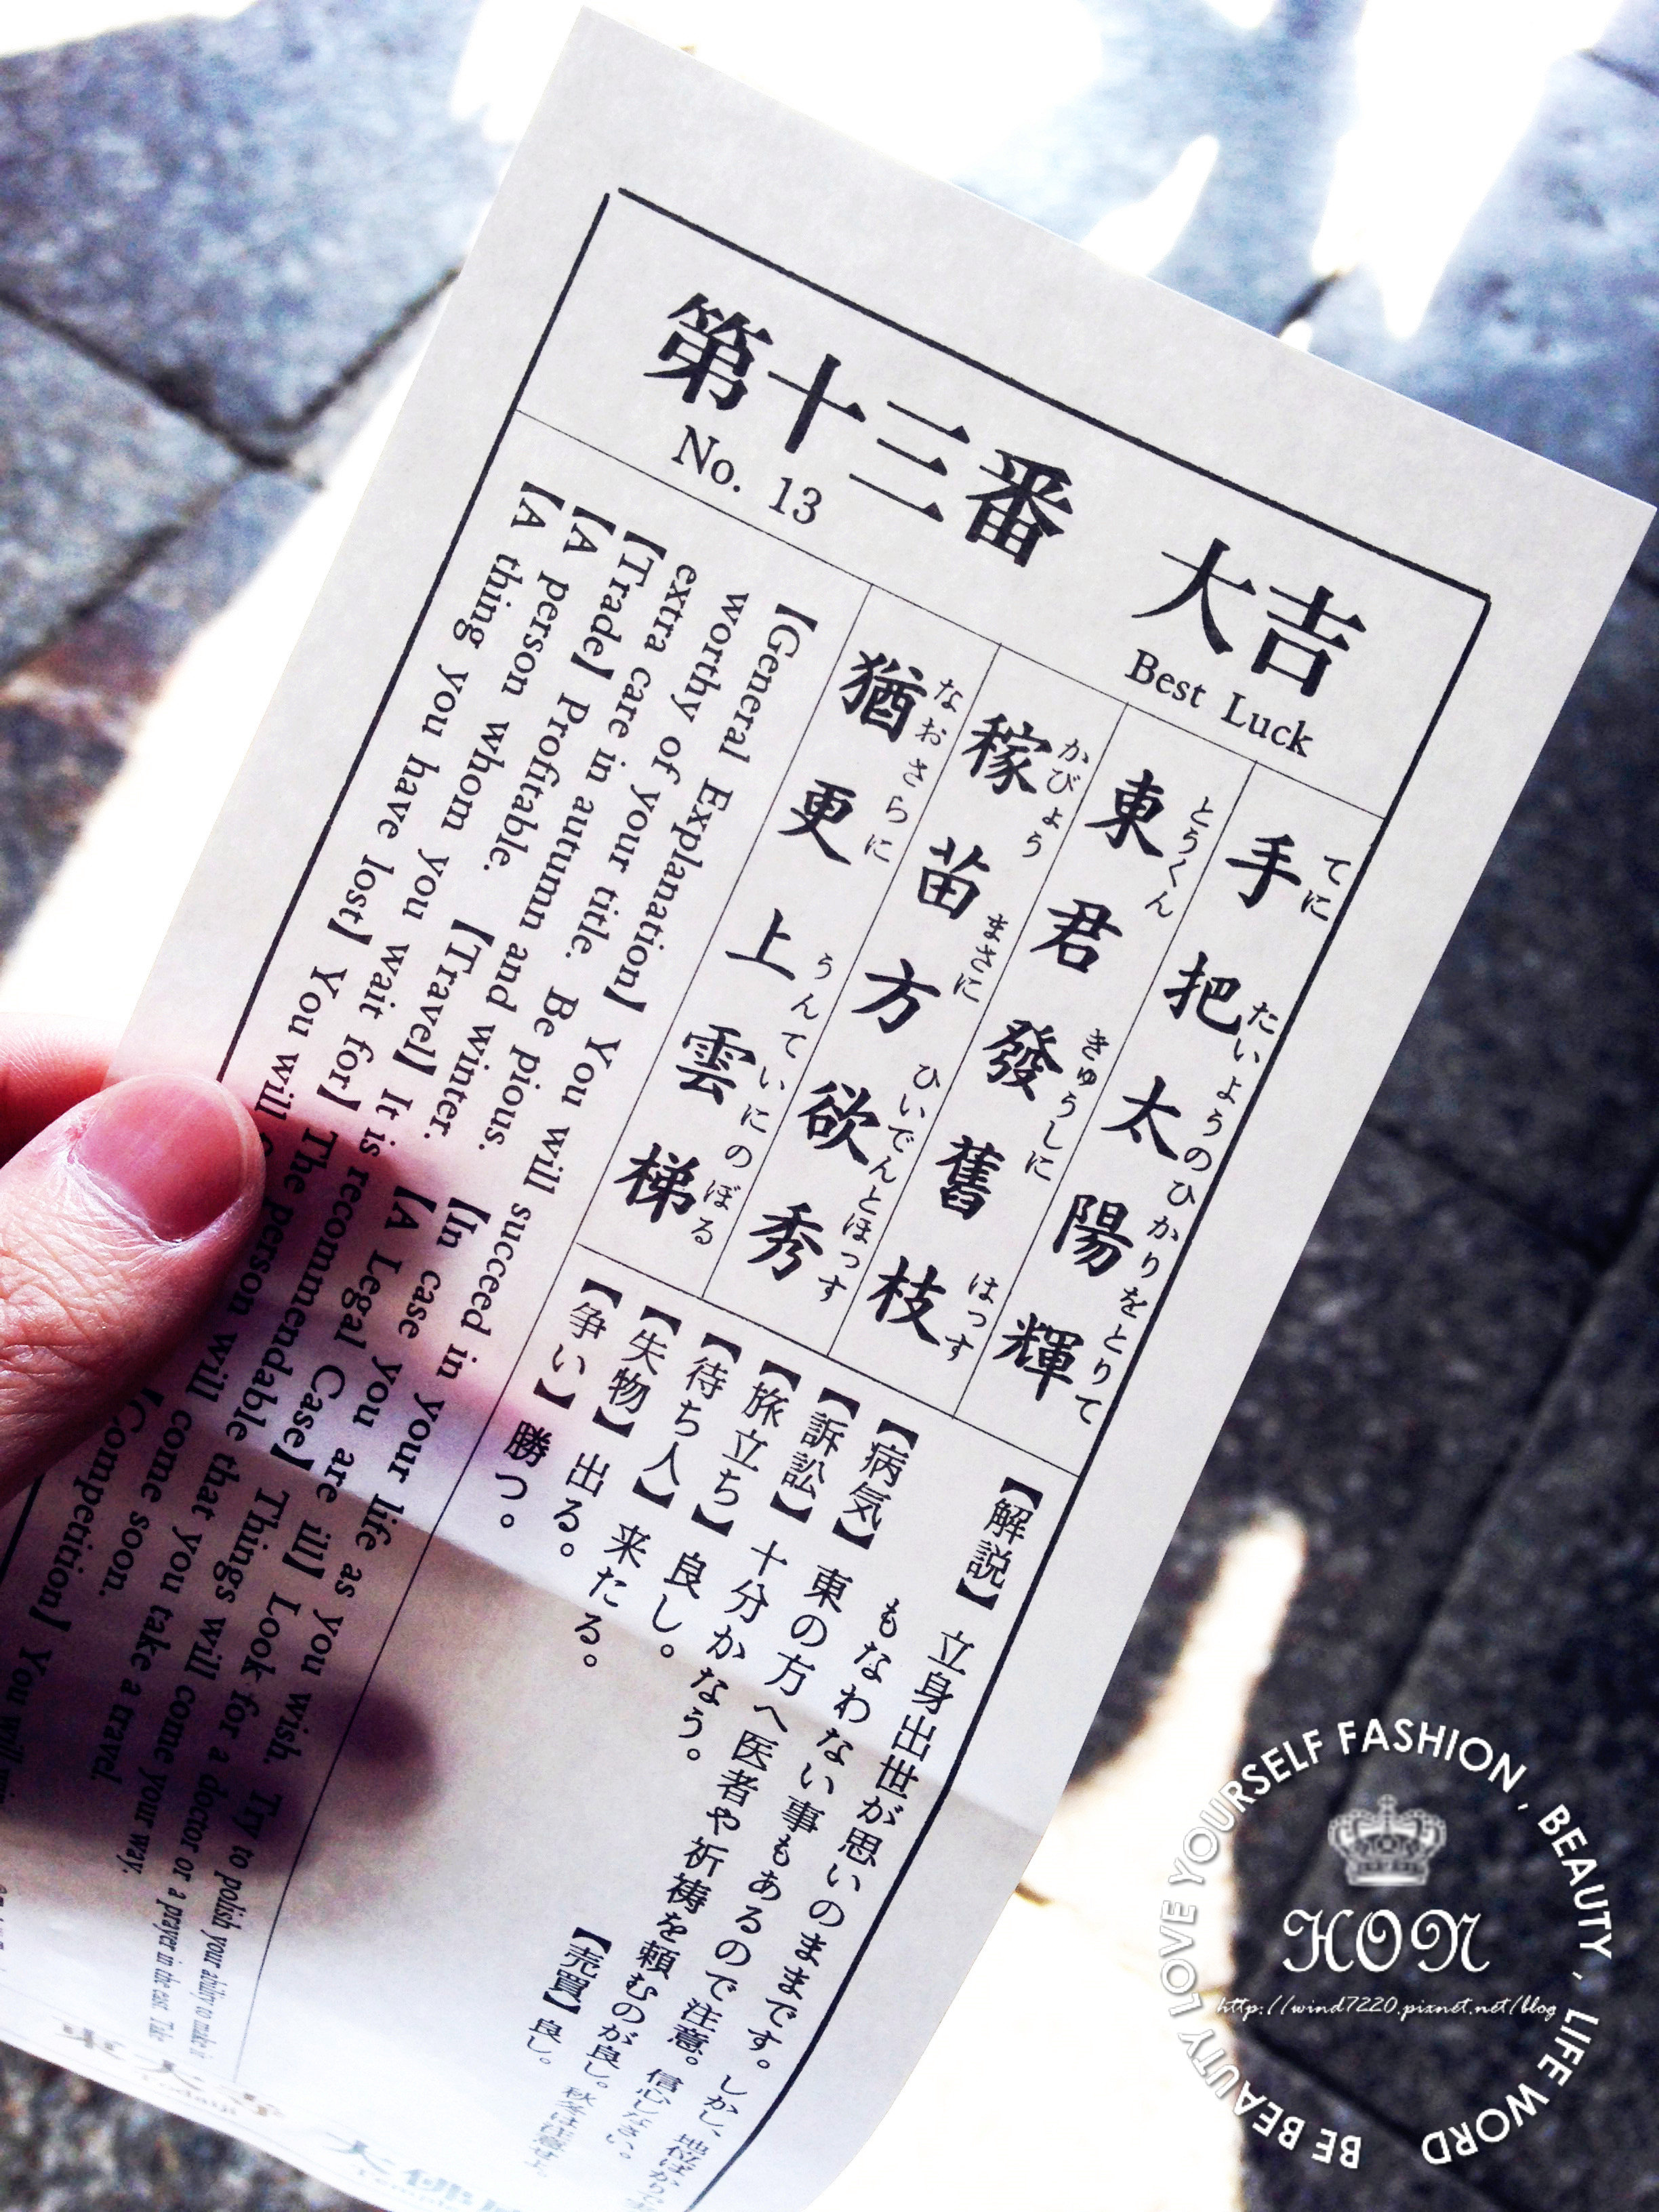 第十三番 大吉
No. 13 Best Luck
手把太陽輝
てに たいようのひかりをとりて
東君發舊枝
とうくん きゅうしに はっす
稼苗方欲秀
かびょう まさに ひいでんとほっす
猶更上雲梯
なおさらに うんていにのぼる
【解説】 立身出世が思いのままです。しかし、
もなわない事もあるので注意。信心しなさい。
【病気】 東の方へ医者や祈祷を頼むのが良し。
【訴訟】 十分かなう。 【売買】 良し。
【旅立ち】 良し。
【待ち人】 来たる。
【失物】 出る。
【争い】 勝つ。
【General Explanation】 You will succeed in your life as you wish. Try to polish your ability to make it
worthy of your title. Be pious. 【In case you are ill】 Look for a doctor or a prayer in the east. Take
extra care in autumn and winter. 【A Legal Case】 Things will come your way.
【Trade】 Profitable. 【Travel】 It is recommendable that you take a travel.
【A person whom you wait for】 The person will come soon.
【A thing you have lost】 You will 【Competition】 You will
HON
http://wind7220.pixnet.net/blog
BE BEAUTY LOVE YOURSELF FASHION , BEAUTY , LIFE WORD